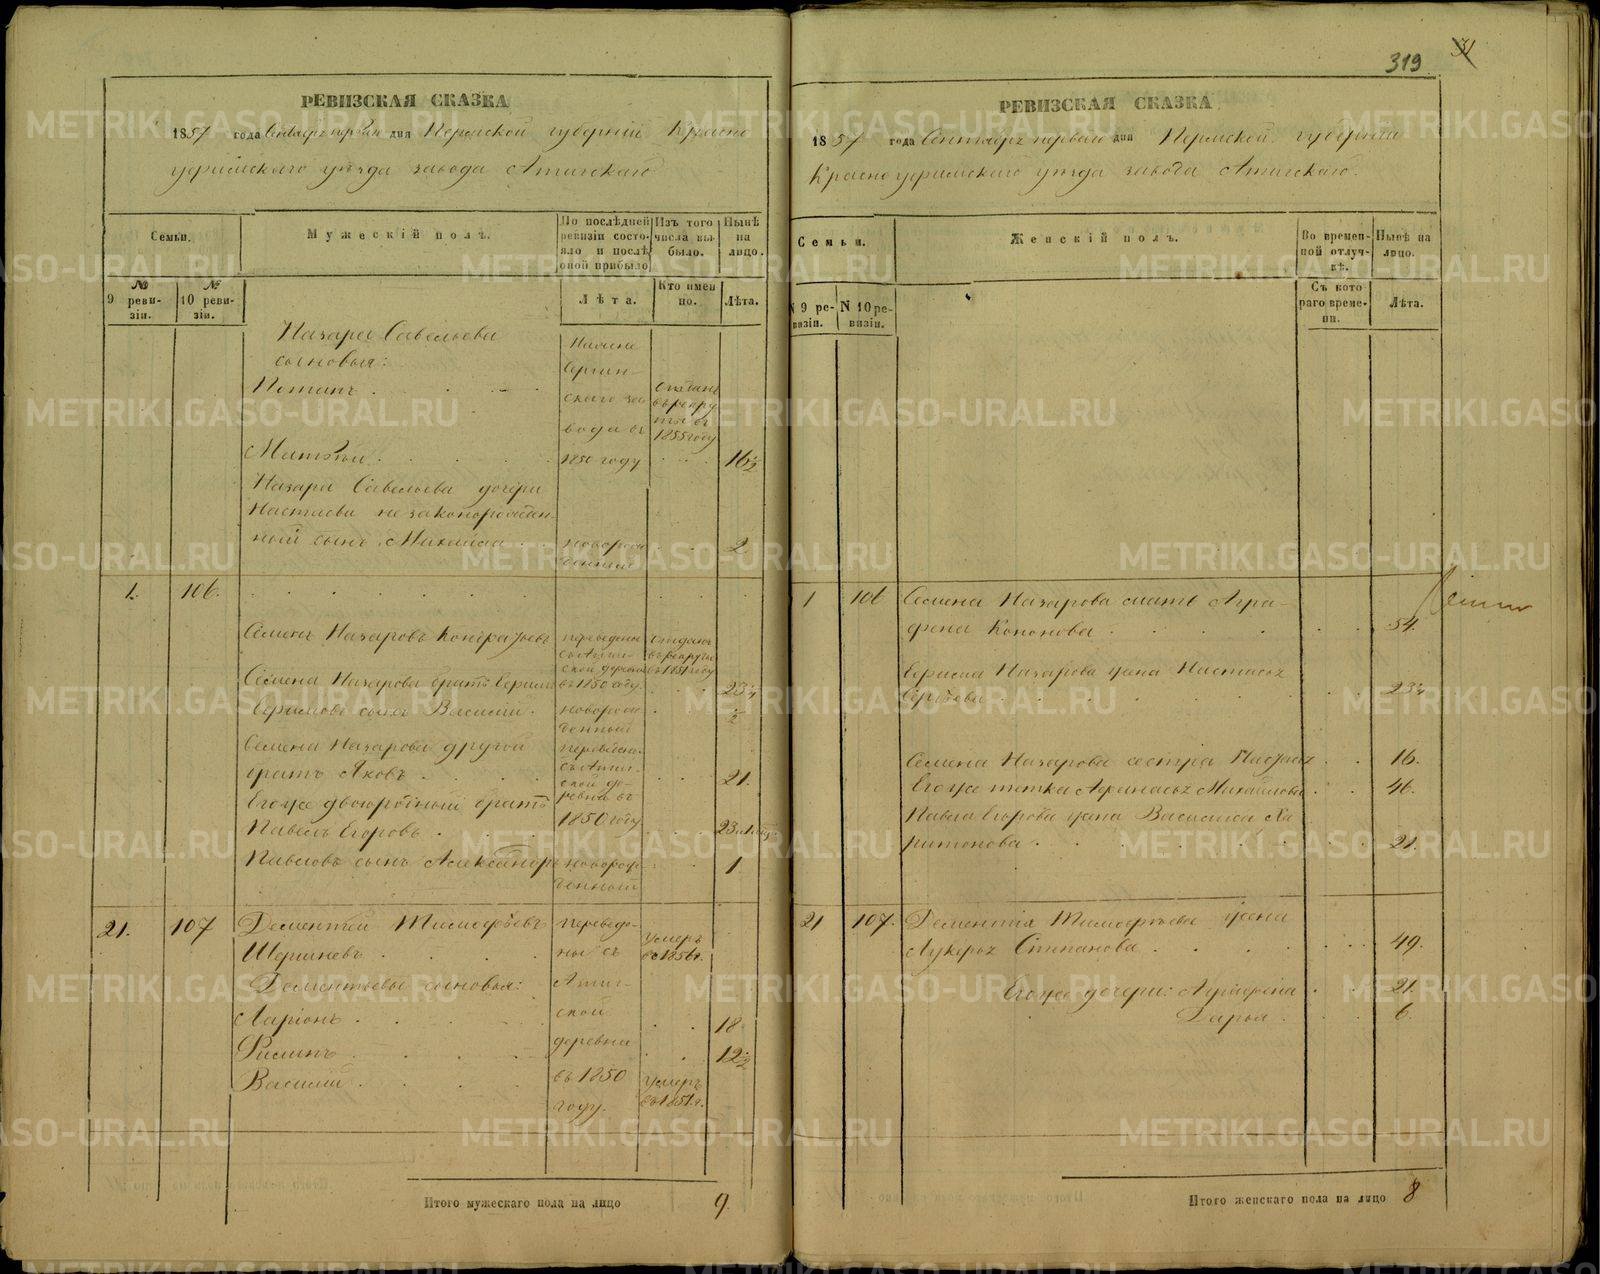 РЕВИЗСКАЯ СКАЗКА
1857 года Сентября первого дня Пермской губерніи Красно
уфимскаго уѣзда завода Атигскаго
Семьи.
Мужескій полъ.
По послѣдней ревизіи состояло и послѣ оной прибыло
Изъ того числа выбыло.
Нынѣ на лицо.
№ 9 ревизіи.
№ 10 ревизіи.
Лѣта.
Кто именно.
Лѣта.
Назара Савельева
сыновья:
Потапъ
отданъ въ рекруты въ 1855 году
Матвѣй
1850 году
16 1/2
Назара Савельева дочери
Настасьи незаконорожден-
ный сынъ Михайла
новорожденный
2
1.
106.
Семенъ Назаровъ
переведены съ Атигской деревни въ 1850 году
отданъ въ рекруты въ 1851 году
Семена Назарова братъ
23 1/4
сынъ Василій
новорожденный
1/2
Семена Назарова другой
братъ Яковъ
21.
Егоже двоюродный братъ
Павелъ Егоровъ
1850 году
Павловъ сынъ Александръ
новорожденный
1.
21.
107
Дементій Тимофѣевъ
переведены съ Атигской деревни въ 1850 году.
умеръ въ 1856 г.
Дементьевы сыновья:
Ларіонъ
18
Филипъ
12 1/2
Василій
умеръ въ 1851 г.
Итого мужескаго пола на лицо
9.
319
31
РЕВИЗСКАЯ СКАЗКА
1857 года Сентября первого дня Пермской губерніи
Красноуфимскаго уѣзда завода Атигскаго.
Семьи.
Женскій полъ.
Во временной отлучкѣ.
Нынѣ на лицо.
N 9 ревизіи.
N 10 ревизіи.
Съ котораго времени.
Лѣта.
1
106
Семена Назарова мать Агра-
фена Кононова
54.
Назарова жена Настасья
Сергѣева
23 1/4
Семена Назарова сестра
16.
Егоже тетка Афанасья Михайлова
46.
Павла Егорова жена Василиса Ха
ритонова
21.
21
107.
Дементія Тимофѣева жена
Лукерья Степанова
49.
Егоже дочери: Аграфена
21.
Дарья
6.
Итого женскаго пола на лицо
8
METRIKI.GASO-URAL.RU